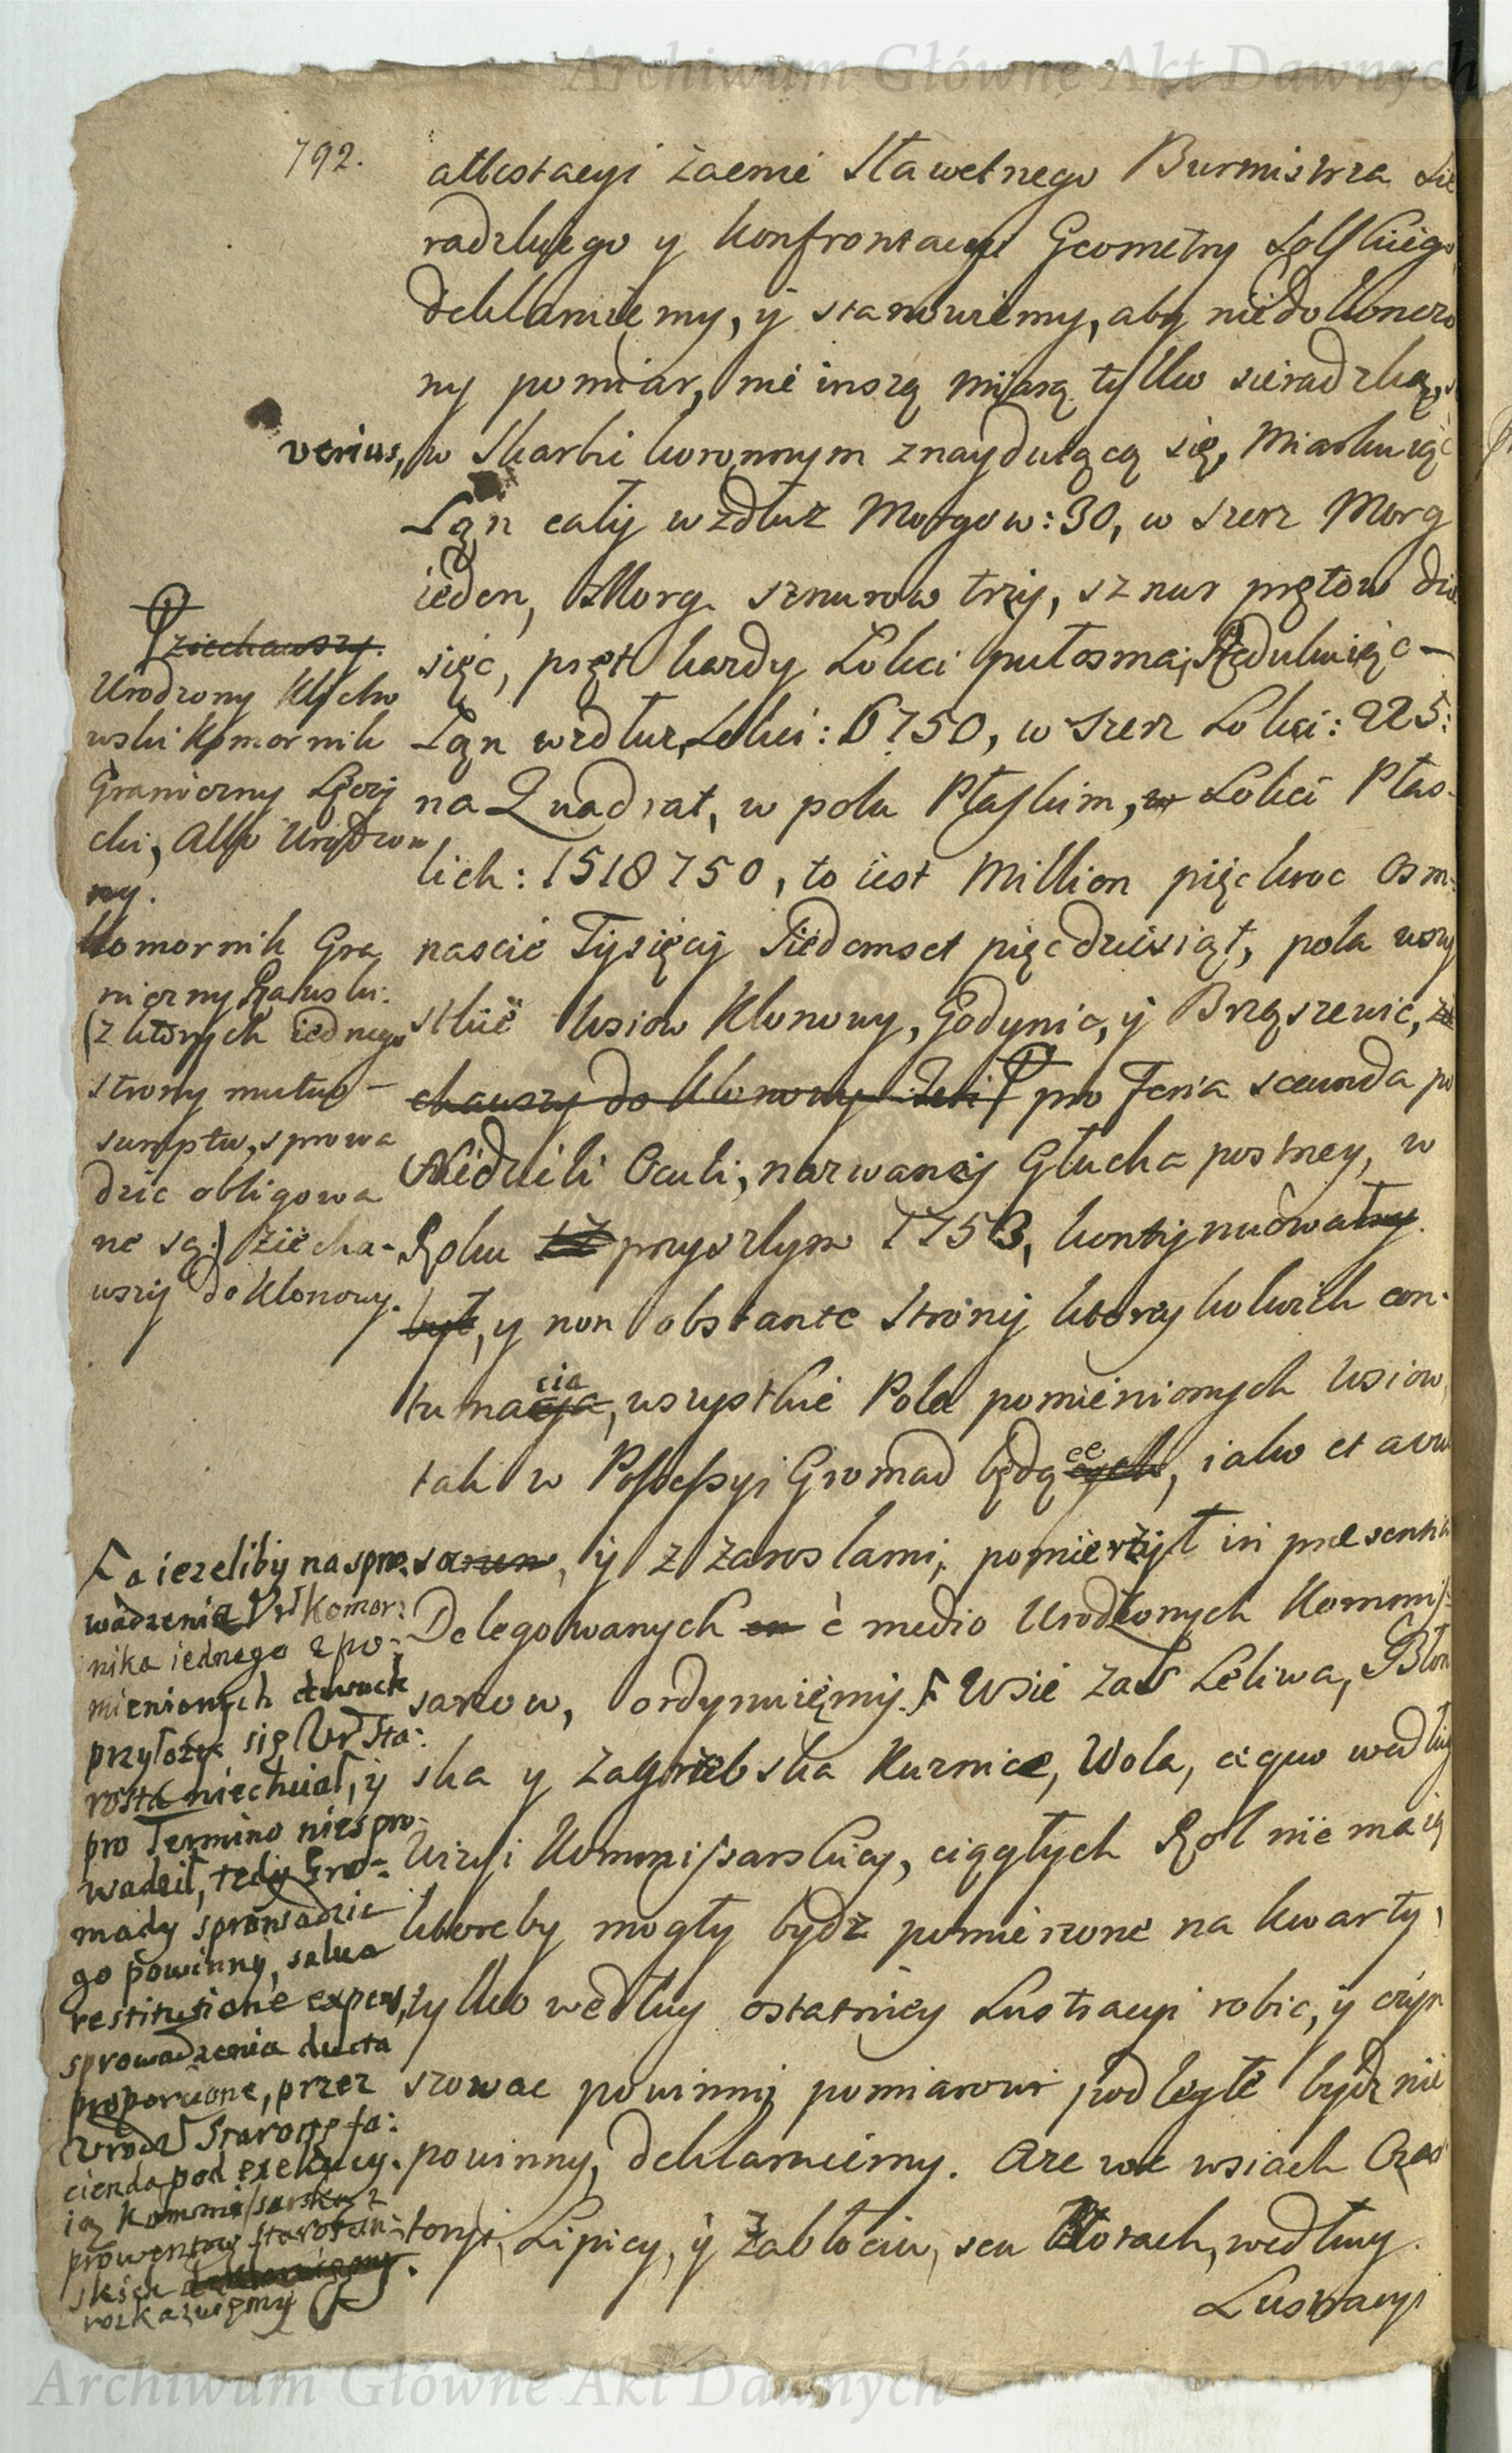 Archiwum Główne Akt Dawnych
792.
attestacyi zacnie Sławetnego Burmistrza Sie
radzkiego y konfrontacyi Geometry
deklaruiemy, y stanowiemy, aby niedokonczo
ny pomiar, nie inszą miarą tylko sieradzką,
verius, w Skarbie koronnym znayduiącą się, Miarkuiąc
Łąn cały wzdłuż Morgow: 30, w szerz Morg
ieden, Morg sznurow trzy, sznur prętow dzie
sięc, pręt kazdy Łokci pułosma, Redukuiąc
Łąn wzdłuz, Łokci: 6750, w Szerz Łokci: 225:
na Quadrat, w polu Płaskim, Łokci Płas-
kich: 1518750, to iest Million pięckroc Osm-
nascie Tysięcy Siedemset pięcdziesiąt, pola wszy
stkie wsiow Klonowy, Godynic, y Brąszewic, zie
chawszy do Klonowy pro Feria secunda po
Niedzieli Oculi, nazwaney Głucha postney, w
Roku przyszłym 1753, kontynuował
był, y non obstante Strony ktorykolwiek con-
tumacia, wszystkie Pola pomienionych wsiow,
tak w Possessyi Gromad będące, iako et
, y z zaroslami, pomierzył in praesentia
Delegowanych è medio Urodzonych Kommis-
sarzow, ordynuiemy. Wsie zas Leliwa, Błon
ska y Zagrzebska Kuznice, Wola, według
Wizyi Kommissarskiey, ciągłych Rol nie maią
ktoreby mogły bydz pomierzone na kwarty,
tylko według ostatniey Lustracyi robic, y czyn
szowac powinni, pomiarowi podległe bydz nie
powinny, deklaruiemy. Aze we wsiach Czas
tory, Lipicy, y Zabłociu, seu Kłotach, według
Lustracyi
Przyiechawszy.
Urodzony Klicho
wski Komornik
Graniczny Łęczy
cki, Albo Urodzo
ny.
Komornik Gra
niczny Rątuski:
(z ktorych iednego
strony mutuo
sumptu, sprowa
dzic obligowa
ne są:) ziecha-
wszy do Klonowy.
a iezeliby na spro-
wadzenia Ur Komor:
nika iednego z po-
mienionych dwoch
przyłożyc się Ur Sta:
rosta niechciał, y
pro Termino niespro-
wadził, tedy Gro-
mady sprowadzic
go powinny, salva
restitutione expens,
sprowadzenia ducta
proportione, przez
Urodz Starostę fa:
cienda pod exekucy-
ią Kommissarską z
prowentow Starostin-
skich deklaruiemy.
rozkazuiemy
Archiwum Główne Akt Dawnych